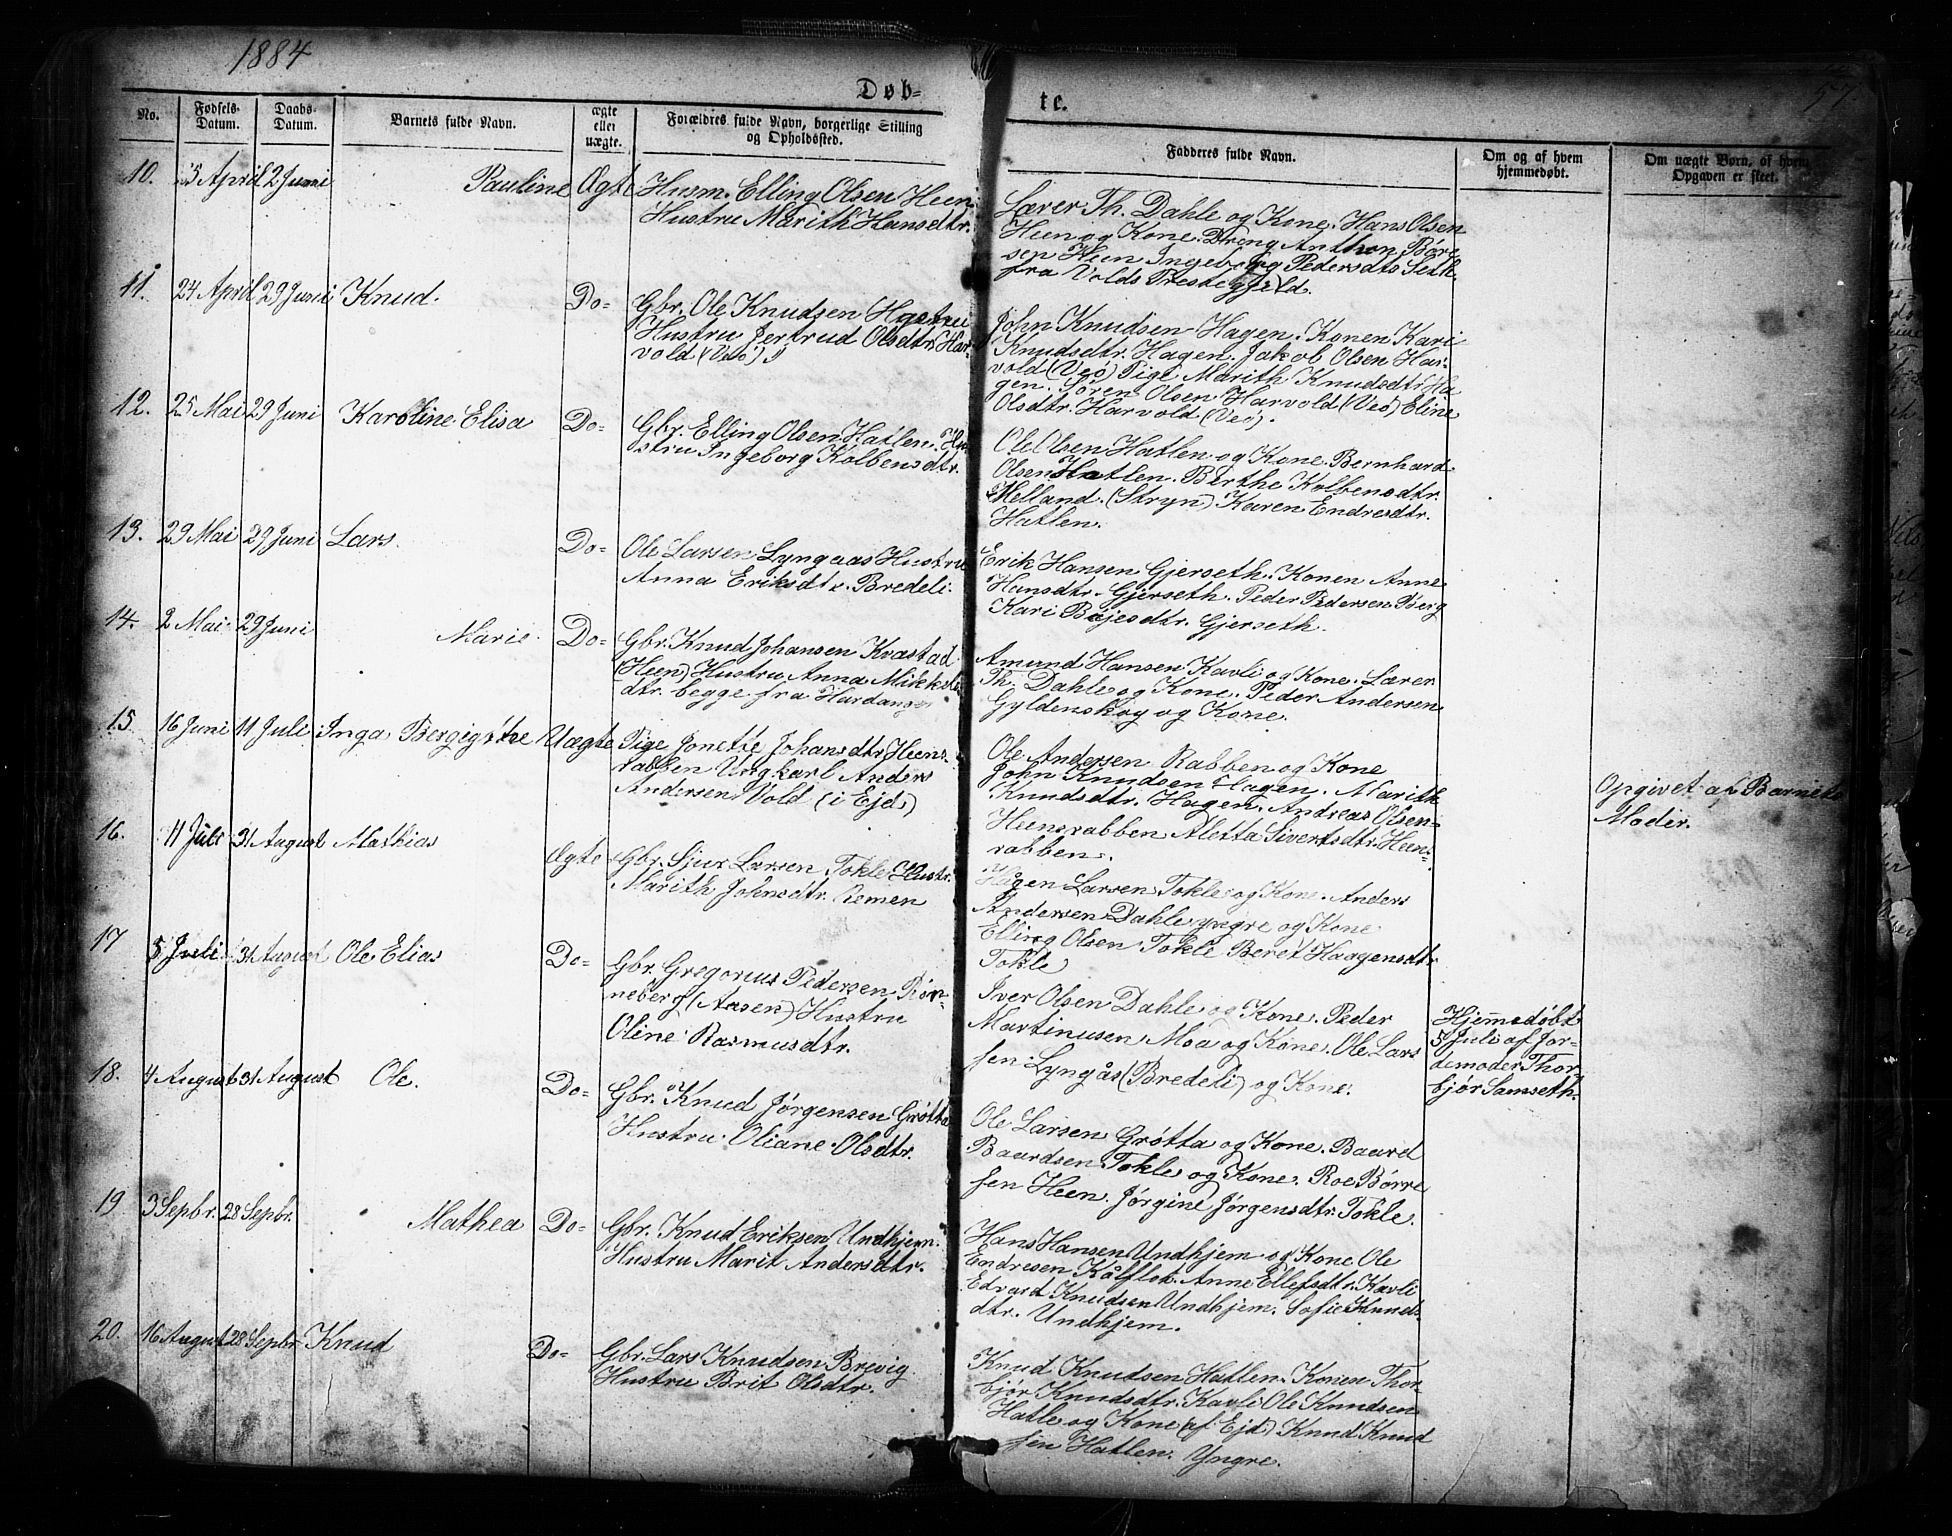 1884
57
Døb-
te.
No.
Fødsels-
Datum.
Daabs-
Datum.
Barnets fulde Navn.
ægte
eller
uægte.
Forældres fulde Navn, borgerlige Stilling
og Opholdssted.
Fadderes fulde Navn.
Om og af hvem
hjemmedøbt.
Om uægte Børn, af hvem
Opgaven er skeet.
10. 3 April 2 Juni Pauline Ægte
Husm. Elling Olsen Heen
Hustru Marith Hansdtr.
Lærer Th. Dahle og Kone. Hans Olsen
Heen og Kone. Dreng Anthon Børe
sen Heen Ingeborg Pedersdtr Seth
fra Volds Prestegjeld.
11. 24 April 29 Juni Knud. Do=
Gbr. Ole Knudsen
Hustru Jertrud Olsdtr. Har-
vold (Veø)
John Knudsen Hagen. Konen Kari
Knudsdtr. Hagen. Jakob Olsen Har-
vold (Veø) Pige Marith Knudsdtr. Ha
gen. Søren Olsen Harvold (Veø) Eline
Olsdtr. Harvold (Veø).
12. 25 Mai 29 Juni Karoline Elisa Do=
Gbr. Elling Olsen Hatlen. Hu
stru Ingeborg Kolbensdtr.
Ole Olsen Hatlen og Kone. Bernhard
Olsen Hatlen. Berthe Kolbensdtr.
Helland. (Stryn) Karen Endresdtr.
Hatlen.
13. 29 Mai 29 Juni Lars. Do=
Ole Larsen Lyngaas Hustru
Anna Eriksdtr. Bredeli.
Erik Hansen Gjerseth. Konen Anne
Hansdtr. Gjerseth. Peder Pedersen Berg
Kari Bøjesdtr. Gjerseth.
14. 2 Mai 29 Juni Marie. Do=
Gbr. Knud Johansen Kvastad
(Heen) Hustru Anna Mikkels
dtr. begge fra Hardanger
Amund Hansen Kavli og Kone. Lærer
Th. Dahle og Kone. Peder Andersen
Gyldenskog og Kone.
15. 16 Juni 11 Juli Inga Uægte
Pige Jonetie Johansdtr. Heens-
rabben Ungkarl Anders
Andersen Vold (i Ejd)
Ole Andersen Rabben og Kone
John Knudsen Hagen. Marith
Knudsdtr. Hagen. Andreas Olsen
Heensrabben Aletta Sivertsdtr. Heens-
rabben.
Opgivet af Barnets
Moder.
16. 11 Juli 31 August Mathias Ægte
Gbr. Sjur Larsen Tokle Hustr.
Marith Johnsdtr. Remen
Hågen Larsen Tokle og Kone. Anders
Andersen Dahle yngre og Kone
Elling Olsen Tokle Beret Haagensdtr
Tokle
17 5 Juli 31 August Ole Elias Do=
Gbr. Gregorius Pedersen Røn-
neberg (Aasen) Hustru
Oline Rasmusdtr.
Iver Olsen Dahle og Kone. Peder
Martinusen Moa og Kone. Ole Lars
sen Lyngås (Bredeli) og Kone.
Hjemmedøbt
5 Juli af Jor-
demoder Thor-
bjør Samseth.
18. 4 August 31 August Ole. Do=
Gbr. Knud Jørgensen Grøtta
Hustru Oliane Olsdtr.
Ole Larsen Grøtta og Kone. Baard
Baardsen Tokle og Kone. Roe Børre
sen Heen. Jørgine Jørgensdtr. Tokle.
19 3 Sepbr. 28 Sepbr. Mathea Do=
Gbr. Knud Eriksen Undhjem.
Hustru Marit Andersdtr.
Hans Hansen Undhjem og Kone Ole
Endresen Kålflot. Anne Ellefsdtr. Kavli
Edvard Knudsen Undhjem. Sofie Knuds
dtr. Undhjem.
20. 16 August 28 Sepbr. Knud Do=
Gbr. Lars Knudsen Brevig
Hustru Brit Olsdtr.
Knud Knudsen Hatlen. Konen Thor
bjør Knudsdtr. Kavli Ole Knudsen
Hatle og Kone (af Ejd) Knud Knud
sen Hatlen. Yngre.